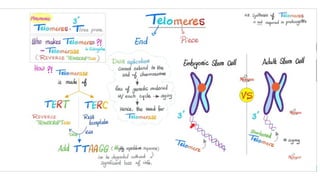 Telomeres
End
Piece
Telomeres: Three prime
3'
Who makes Telomeres??
Telomerase
(REVERSE TRANSCRIPTASE)
How??
Telomerase
is made of
TERT
TERC
REVERSE
TRANSCRIPTASE
RNA
template
Add TTAAGG (Highly repetitive sequence)
can be degraded without a
significant loss of info.
DNA replication
Cannot extend to the
end of chromosome
Loss of genetic material
w/ each cycle → aging
Hence, the need for
Telomerase
Synthesis of Telomeres
is not required in prokaryotes
Embryonic Stem Cell
VS
Adult Stem Cell
3'
Telomere
3'
Shortened
Telomere
→ aging